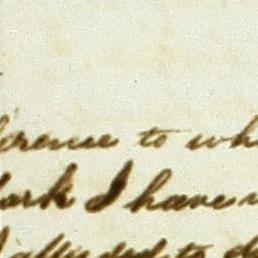 ference to wh
ark I have
alluded to d